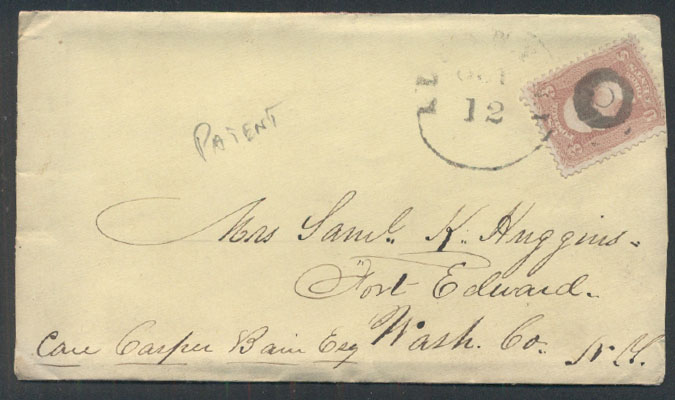 OCT
12
PATENT
Mrs Saml. K. Huggins.
Fort Edward.
Wash. Co. N.Y.
Care Casper Bain Esq